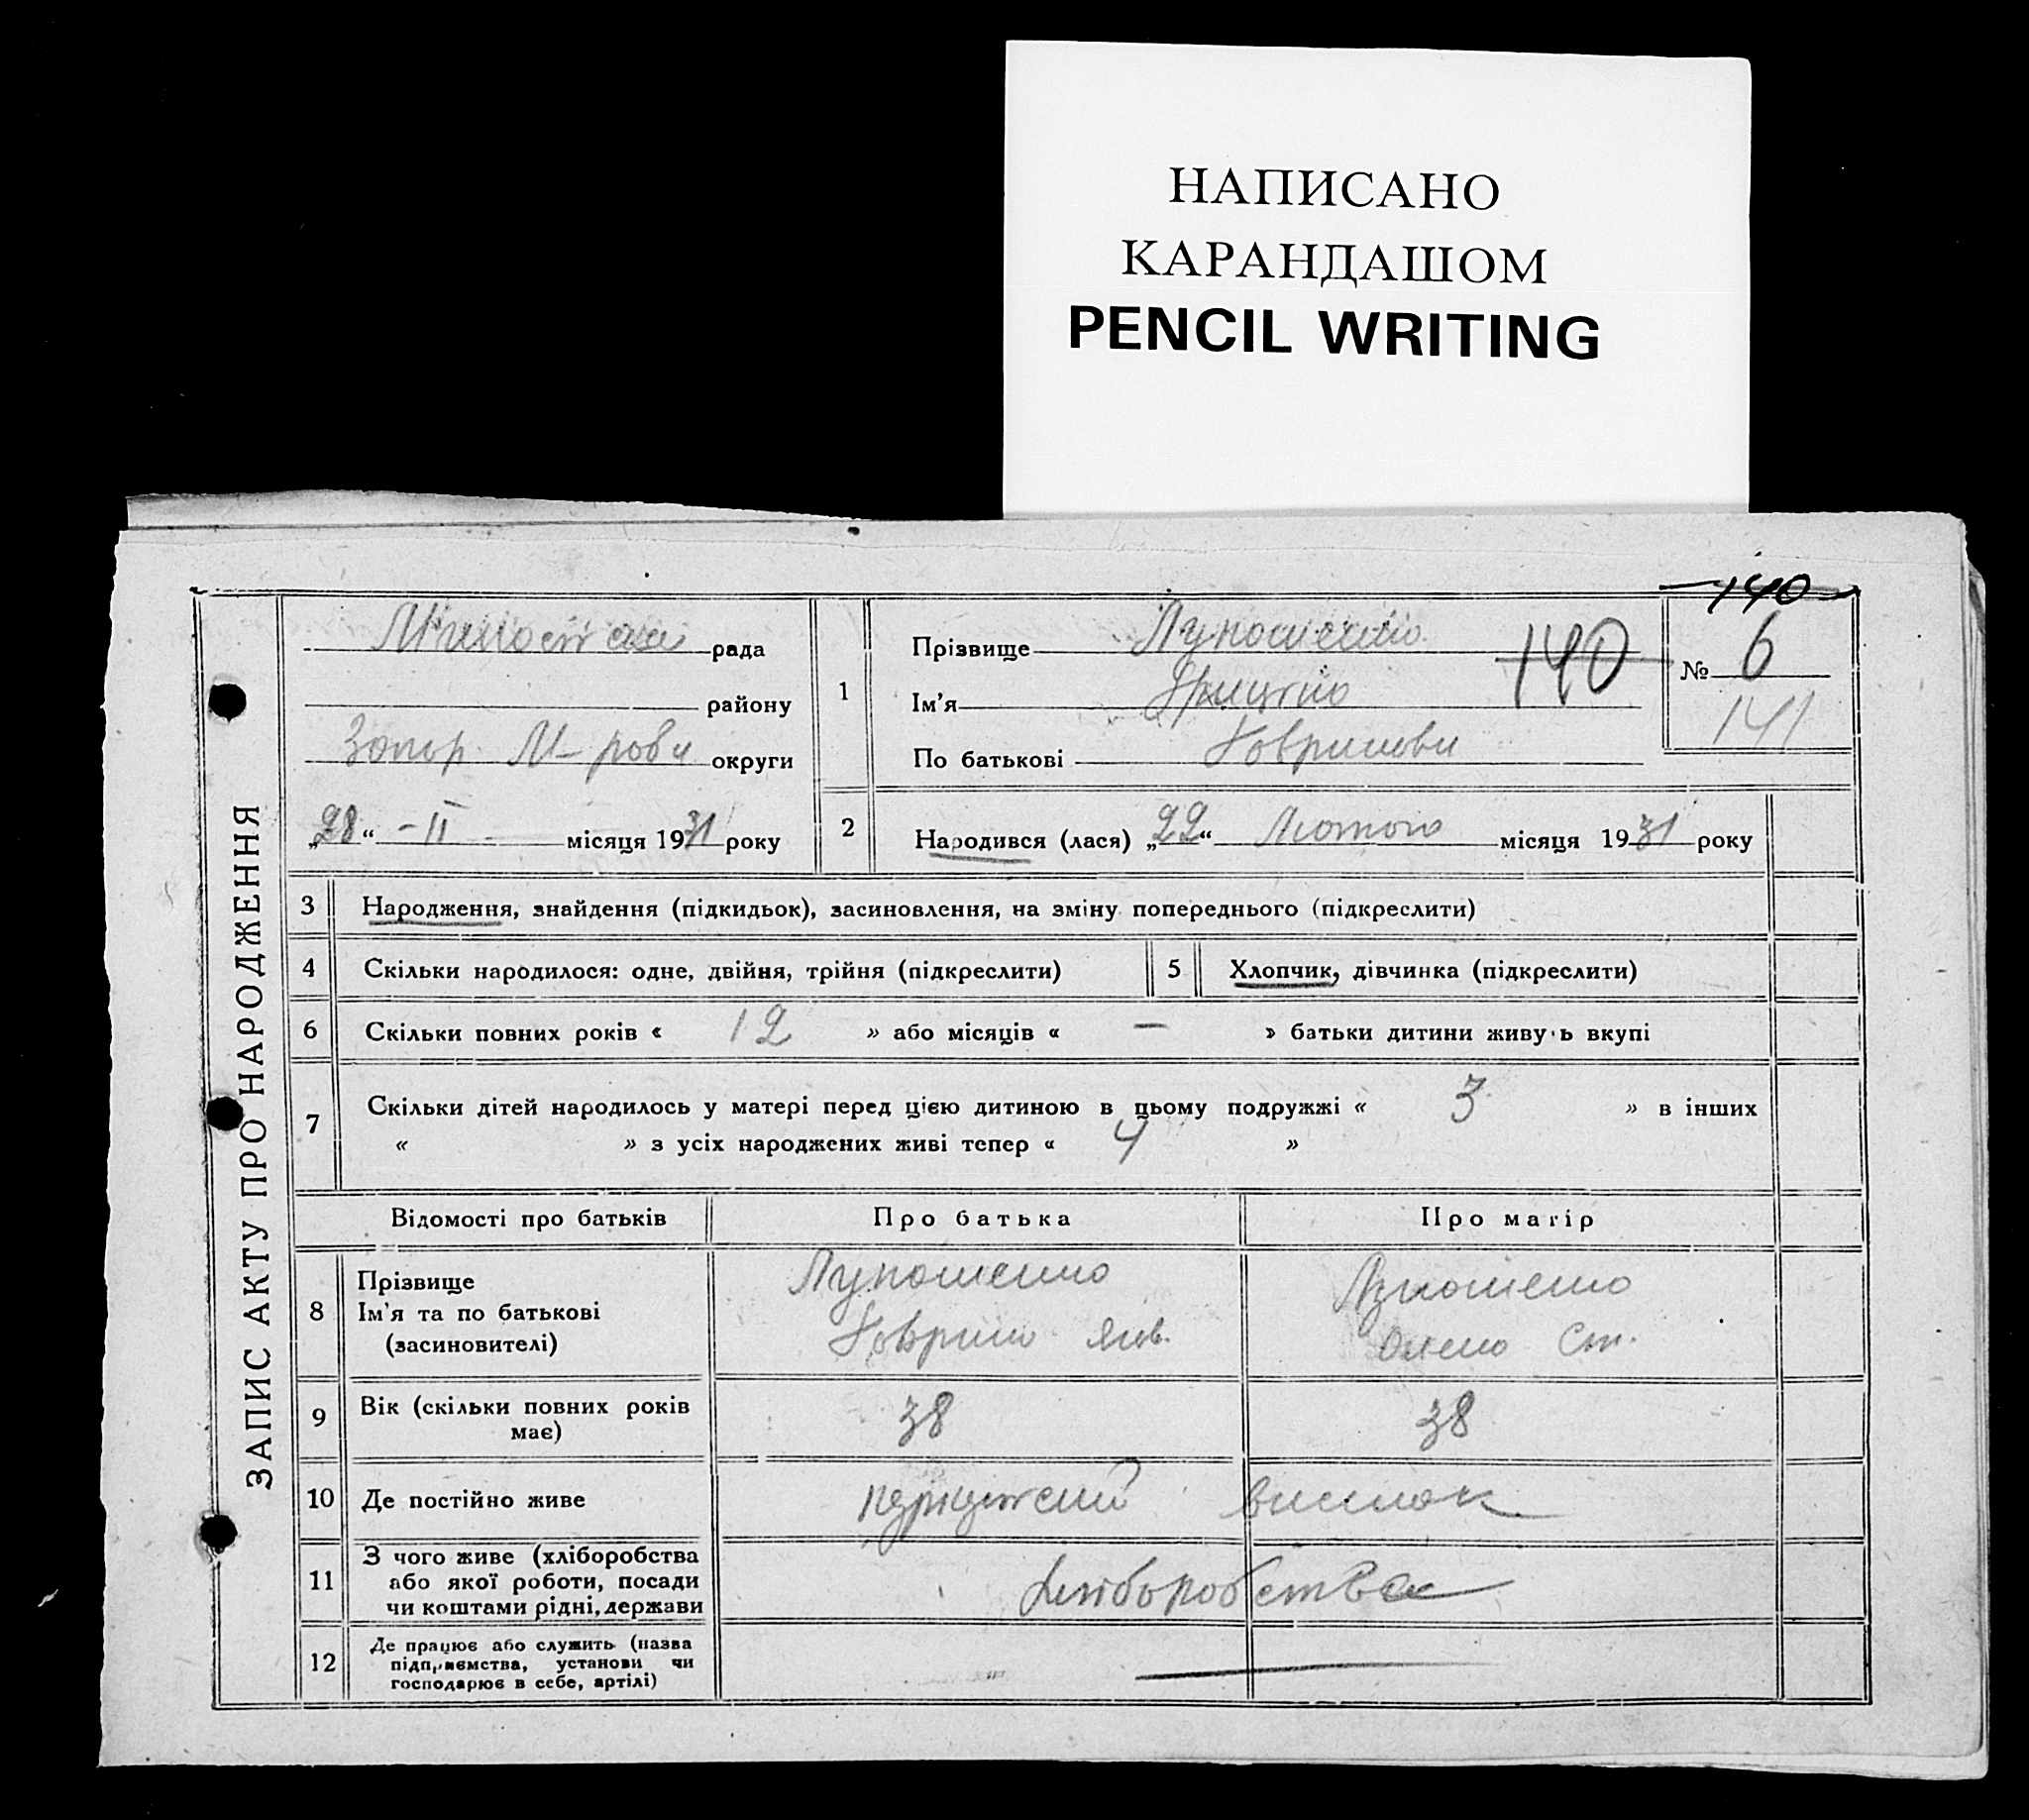 НАПИСАНО
КАРАНДАШОМ
PENCIL WRITING
ЗАПИС АКТУ ПРО НАРОДЖЕННЯ
140
рада
району
Запор. М-рови округи
„28“ - II місяця 1931 року
1
Прізвище
140
Ім'я Грицько
По батькові
№ 6
141
2
Народився (лася) „22“ Лютого місяця 1931 року
3 Народження, знайдення (підкидьок), засиновлення, на зміну попереднього (підкреслити)
4 Скільки народилося: одне, двійня, трійня (підкреслити)
5 Хлопчик, дівчинка (підкреслити)
6 Скільки повних років « 12 » або місяців « — » батьки дитини живуть вкупі
7 Скільки дітей народилось у матері перед цією дитиною в цьому подружжі « 3 » в інших
« » з усіх народжених живі тепер « 4 »
Відомості про батьків Про батька Про матір
8 Прізвище
Ім'я та по батькові
(засиновителі)
Олена Ст.
9 Вік (скільки повних років
має)
38 38
10 Де постійно живе
висилок
11 З чого живе (хліборобства
або якої роботи, посади
чи коштами рідні, держави
хліборобства
12 Де працює або служить (назва
підприємства, установи чи
господарює в себе, артілі)